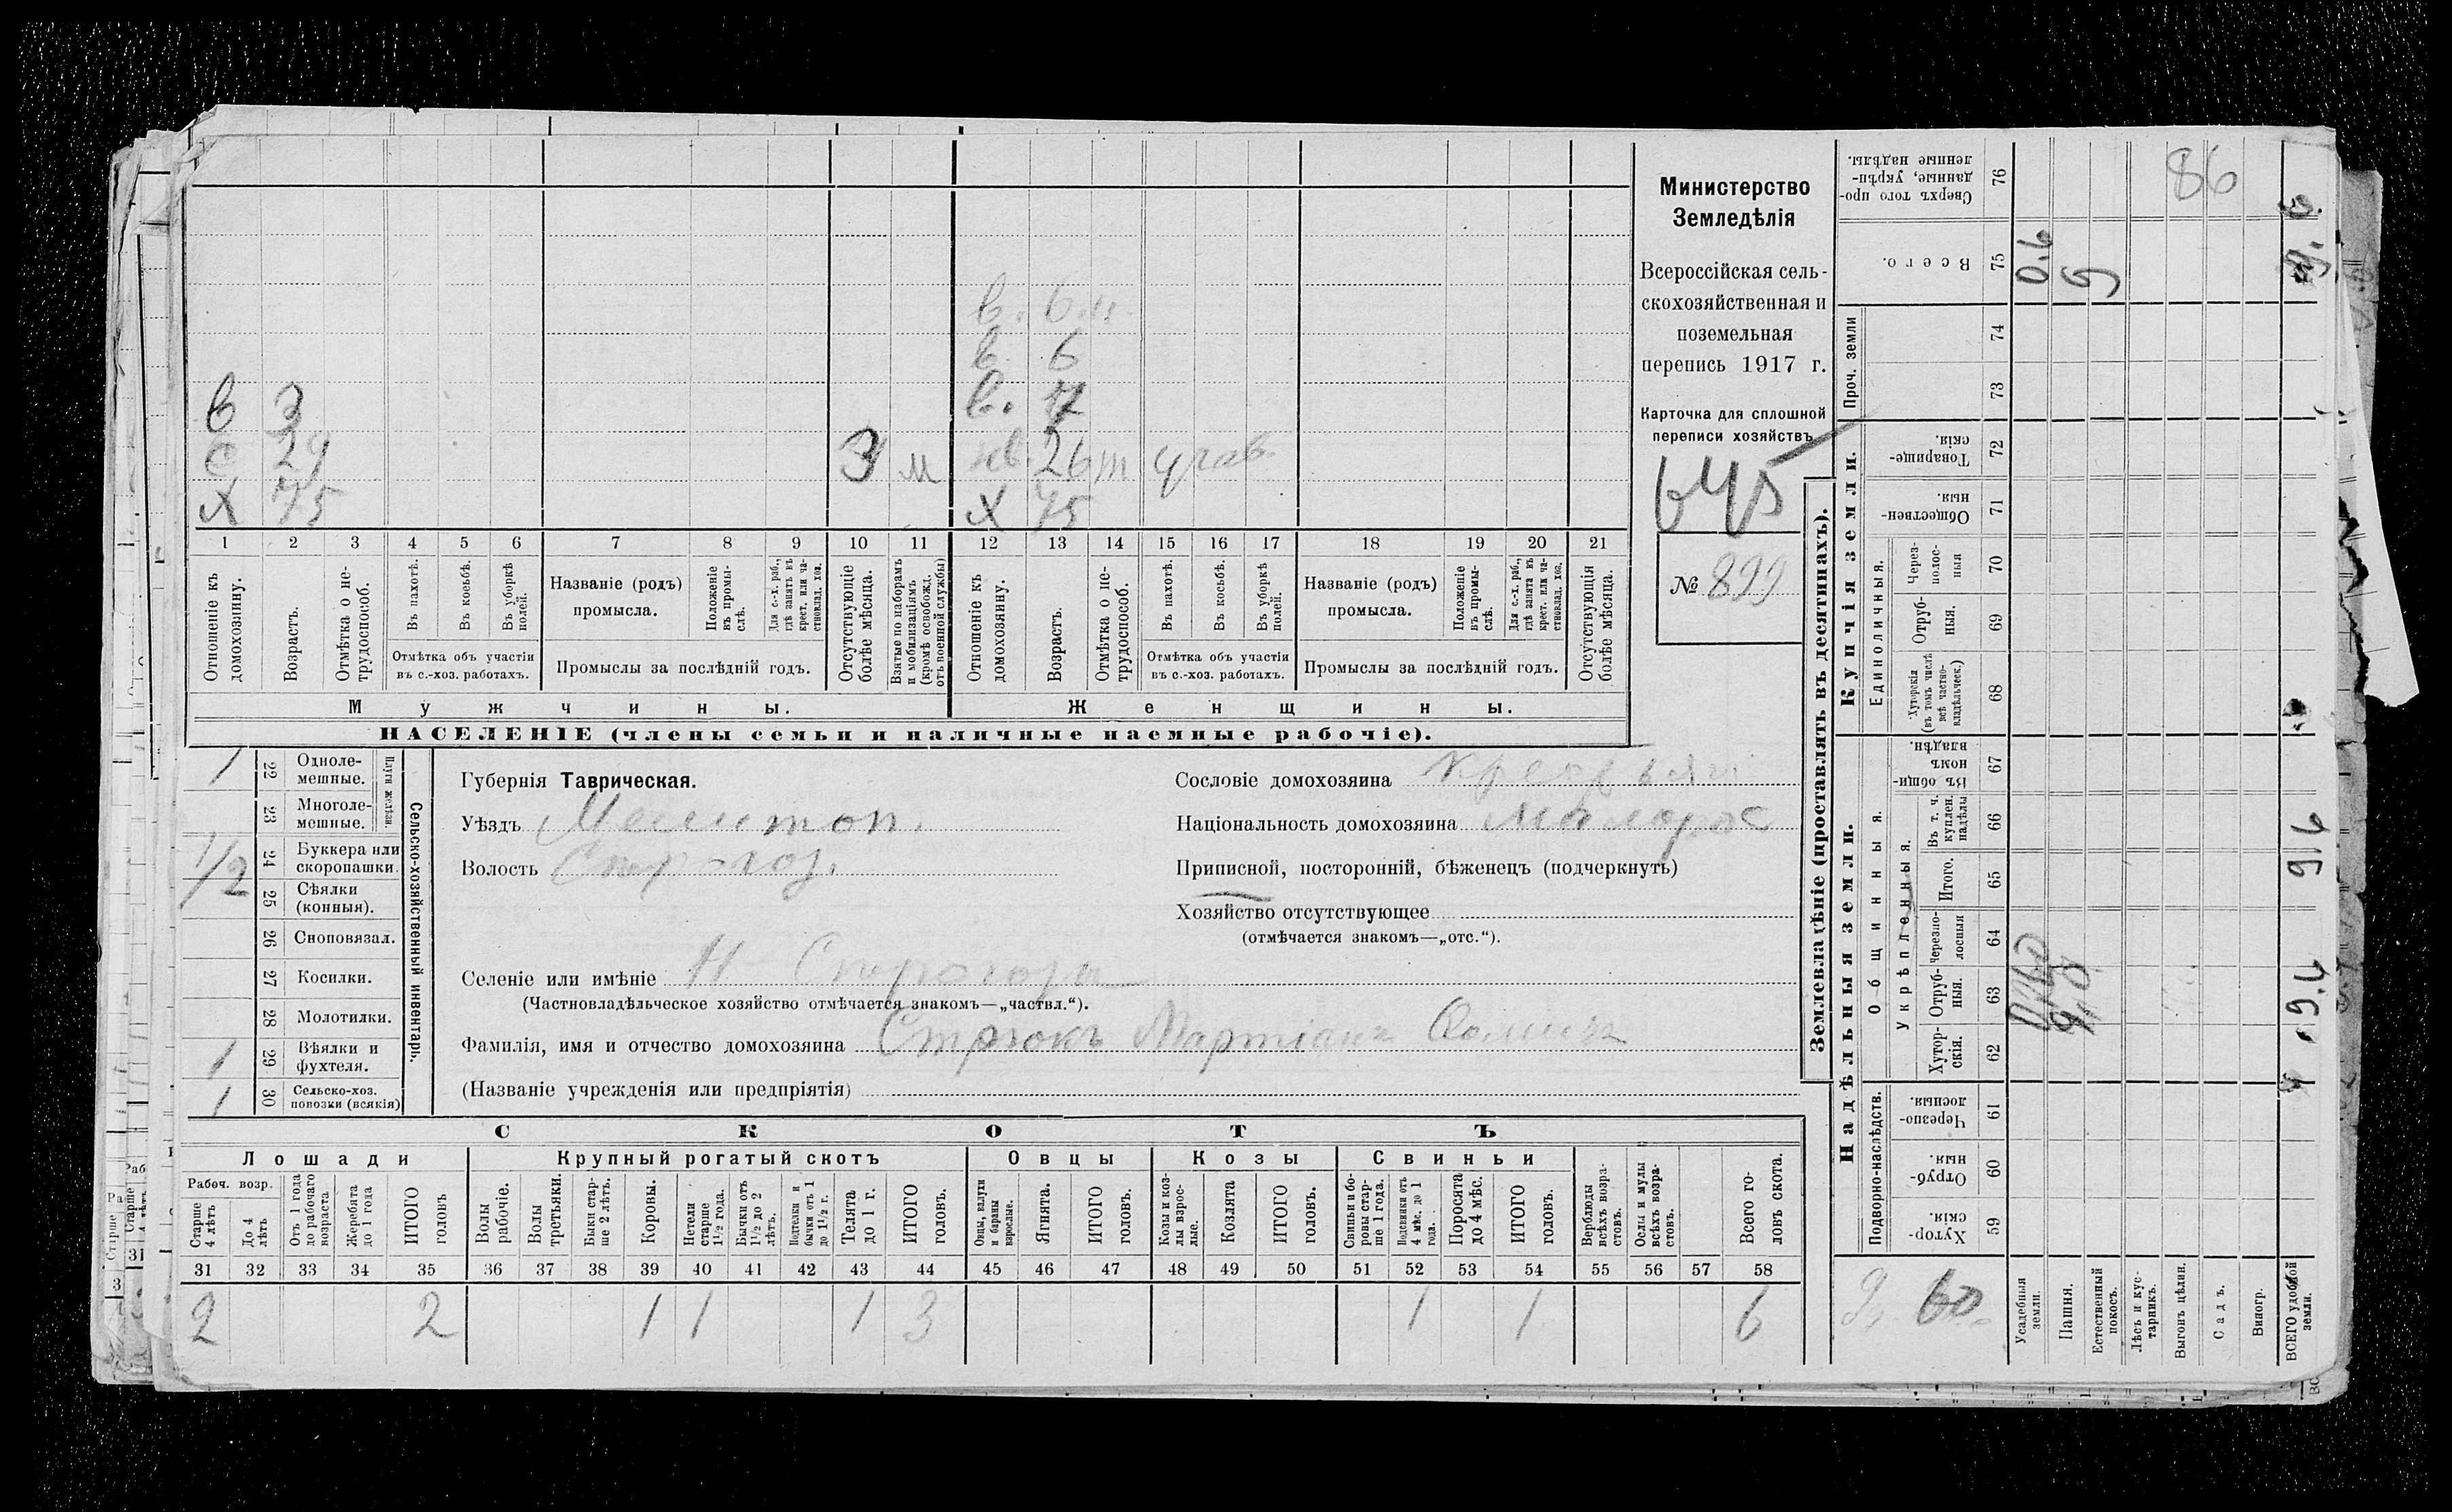 86
Министерство
Земледѣлія
Всероссійская сель-
скохозяйственная и
поземельная
перепись 1917 г.
Карточка для сплошной
переписи хозяйствъ
645
№ 899
в. 6 м.
в. 6
в 3 в. 7
с 29 3 м нв. 26 т
х 75 х 75
1 2 3 4 5 6 7 8 9 10 11 12 13 14 15 16 17 18 19 20 21
Отношеніе къ домохозяину.
Возрастъ.
Отмѣтка о не-трудоспособ.
Въ пахотѣ.
Въ косьбѣ.
Въ уборкѣ полей.
Отмѣтка объ участіи въ с.-хоз. работахъ.
Названіе (родъ) промысла.
Положеніе въ промы-слѣ.
Для с.-х. раб., гдѣ занятъ въ крест. или ча-стновлад. хоз.
Промыслы за послѣдній годъ.
Отсутствующіе болѣе мѣсяца.
Взятые по наборамъ и мобилизаціямъ (кромѣ освобожд. отъ военной службы)
Отношеніе къ домохозяину.
Возрастъ.
Отмѣтка о не-трудоспособ.
Въ пахотѣ.
Въ косьбѣ.
Въ уборкѣ полей.
Отмѣтка объ участіи въ с.-хоз. работахъ.
Названіе (родъ) промысла.
Положеніе въ промы-слѣ.
Для с.-х. раб., гдѣ занята въ крест. или ча-стновлад. хоз.
Промыслы за послѣдній годъ.
Отсутствующія болѣе мѣсяца.
Мужчины. Женщины.
НАСЕЛЕНІЕ (члены семьи и наличные наемные рабочіе).
Сельско-хозяйственный инвентарь.
Плуги желѣзн.
1 22 Одноле-мешные.
23 Многоле-мешные.
1/2 24 Буккера или скоропашки.
25 Сѣялки (конныя).
26 Сноповязал.
27 Косилки.
28 Молотилки.
1 29 Вѣялки и фухтеля.
1 30 Сельско-хоз. повозки (всякія)
Губернія Таврическая.
Уѣздъ Мелитоп.
Волость Строгоз.
Селеніе или имѣніе Н Строгозы
(Частновладѣльческое хозяйство отмѣчается знакомъ—„частвл.“).
Фамилія, имя и отчество домохозяина Стрюкъ Мартіанъ
(Названіе учрежденія или предпріятія)
Сословіе домохозяина крестьян
Національность домохозяина малорос
Приписной, посторонній, бѣженецъ (подчеркнуть)
Хозяйство отсутствующее
(отмѣчается знакомъ—„отс.“).
СКОТЪ
Лошади Крупный рогатый скотъ Овцы Козы Свиньи
Рабоч. возр.
Старше 4 лѣтъ
До 4 лѣтъ
Отъ 1 года до рабочаго возраста
Жеребята до 1 года
ИТОГО головъ
Волы рабочіе.
Волы третьяки.
Быки стар-ше 2 лѣтъ.
Коровы.
Нетели старше 1½ года.
Бычки отъ 1½ до 2 лѣтъ.
Подтелки и бычки отъ 1 до 1½ г.
Телята до 1 г.
ИТОГО головъ.
Овцы, валухи и бараны взрослые.
Ягнята.
ИТОГО головъ.
Козы и коз-лы взрос-лые.
Козлята
ИТОГО головъ.
Свиньи и бо-ровы стар-ше 1 года.
Подсвинки отъ 4 мѣс. до 1 года.
Поросята до 4 мѣс.
ИТОГО головъ.
Верблюды всѣхъ возра-стовъ.
Ослы и мулы всѣхъ возра-стовъ.
Всего го-ловъ скота.
31 32 33 34 35 36 37 38 39 40 41 42 43 44 45 46 47 48 49 50 51 52 53 54 55 56 57 58
2 2 1 1 1 3 1 1 6
Землевладѣніе (проставлять въ десятинахъ).
Надѣльныя земли.
Подворно-наслѣдств.
Хутор-скія. 59
Отруб-ныя. 60
Черезпо-лосныя. 61
Общинныя.
Укрѣпленныя.
Хутор-скія. 62
Отруб-ныя. 63
Черезпо-лосныя 64
Итого. 65
Въ т. ч. куплен. надѣлы 66
Въ общи-номъ владѣн. 67
Купчія земли.
Единоличныя.
Хуторскія (въ томъ числѣ всѣ частно-владѣльческ.) 68
Отруб-ныя. 69
Через-полос-ныя 70
Обществен-ныя. 71
Товарище-скія. 72
Проч. земли
73 74
Всего. 75
Сверхъ того про-данные, укрѣп-ленные надѣлы. 76
Усадебныя земли. 0.6
Пашня. 9
Естественный покосъ.
Лѣсъ и кус-тарникъ.
Выгонъ цѣлин.
Садъ.
Виногр.
ВСЕГО удобной земли. 9.6